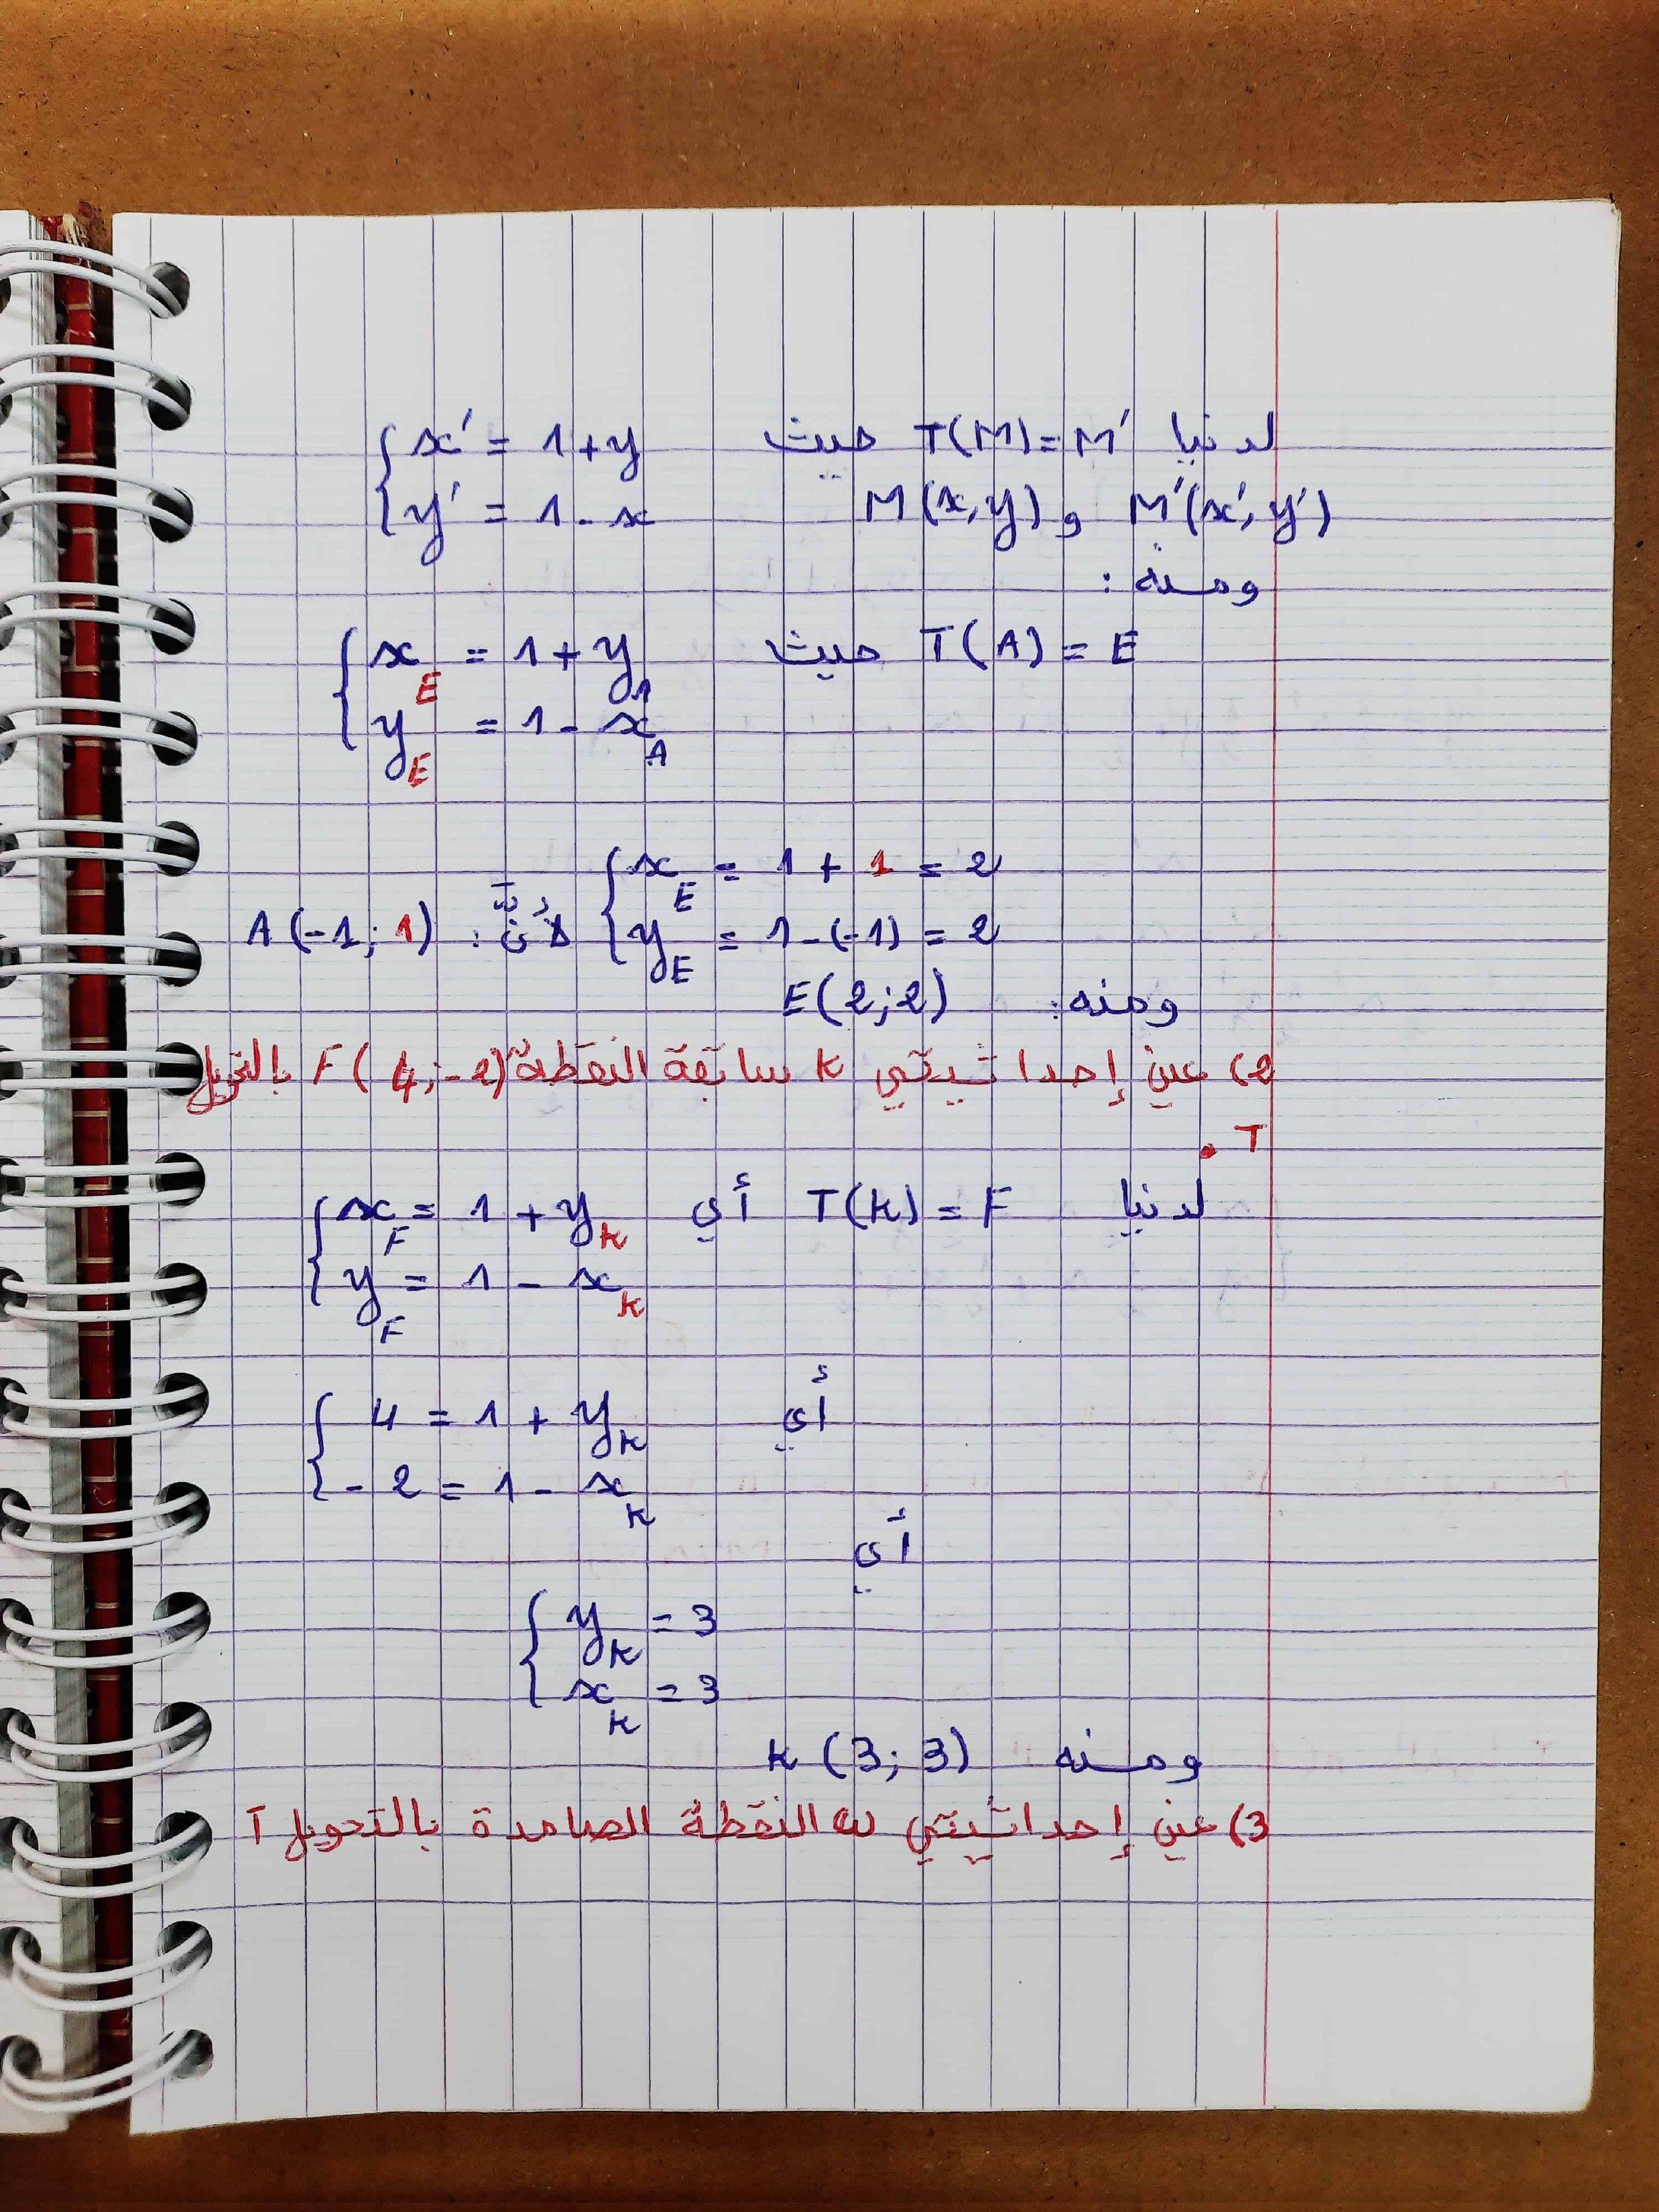 لدينا T(M)=M' حيث { x' = 1+y
M'(x', y') و M(x, y) { y' = 1-x
ومنه :
T(A) = E حيث { x_E = 1+y_A
{ y_E = 1-x_A
{ x_E = 1+1 = 2
{ y_E = 1-(-1) = 2 لأنّ : A(-1; 1)
ومنه: E(2;2)
2) عين إحداثيتي K سابقة النقطة F(4;-2) بالتحويل
T .
لدينا T(K) = F أي { x_F = 1+y_K
{ y_F = 1-x_K
أي { 4 = 1+y_K
{ -2 = 1-x_K
أي
{ y_K = 3
{ x_K = 3
ومنه K(3;3)
3) عين إحداثيتي ω النقطة الصامدة بالتحويل T